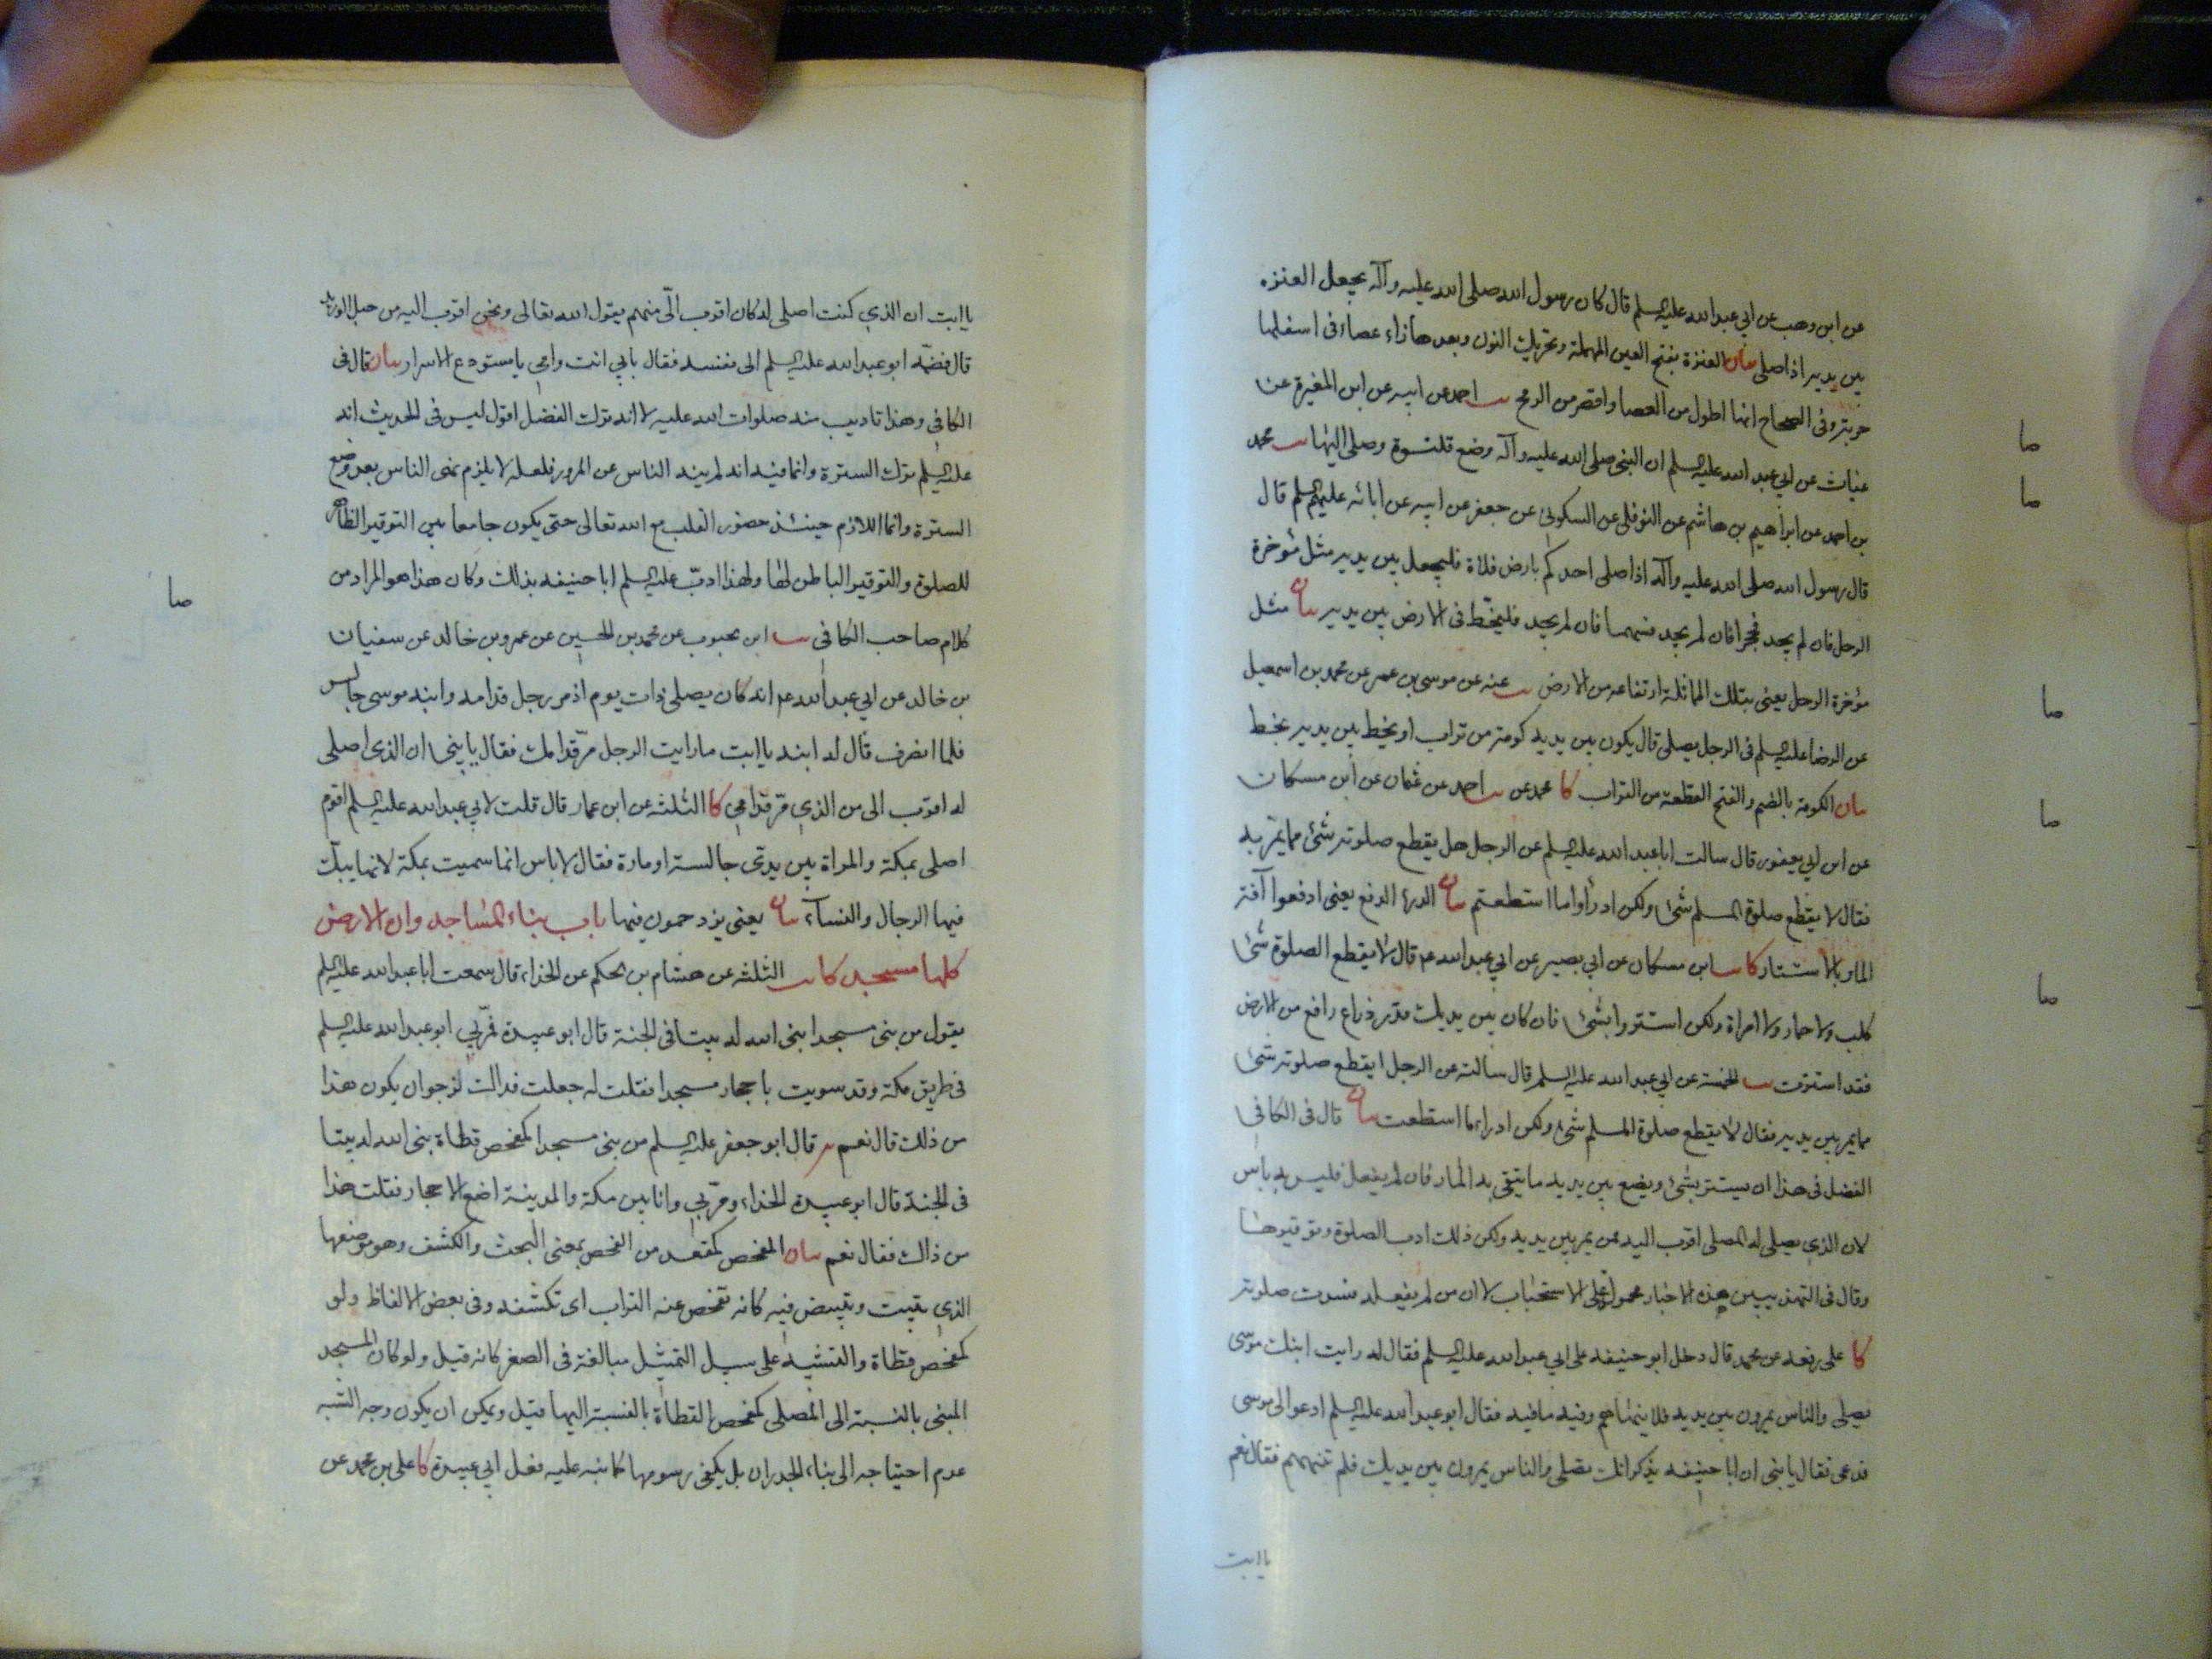 عن ابن وهب عن ابي عبدالله عليه السلم قال كان رسول الله صلى الله عليه وآله يجعل العنزة
بين يديه اذا صلى بيان العنزة بفتح العين المهملة وتحريك النون وبعدها زاء عصاء فى اسفلها
حربة وفى الصحاح انها اطول من العصا واقصر من الرمح يب احمد عن ابيه عن ابن المغيرة عن
صا
غياث عن ابي عبد الله عليه السلم ان النبى صلى الله عليه وآله وضع قلنسوة وصلى اليها يب محمد
صا
بن احمد عن ابراهيم بن هاشم عن النوفلى عن السكونى عن جعفر عن ابيه عن ابائه عليهم السلم قال
قال رسول الله صلى الله عليه وآله اذا صلى احدكم بارض فلاة فليجعل بين يديه مثل مؤخرة
الرحل فان لم يجد فحجرا فان لم يجد فسهما فان لم يجد فليخط فى الارض بين يديه بيان مثل
مؤخرة الرحل يعنى بتلك المماثلة ارتفاعه من الارض يب عنه عن موسى بن عمر عن محمد بن اسمعيل
صا
عن الرضا عليه السلم فى الرجل يصلى قال يكون بين يديه كومة من تراب او يخط بين يديه بخط
بيان الكومة بالضم والفتح القطعة من التراب كا محمد عن يب احمد عن عثمان عن ابن مسكان
صا
عن ابن ابي يعفور قال سالت ابا عبد الله عليه السلم عن الرجل هل يقطع صلوته شئ مما يمر به
فقال لا يقطع صلوة المسلم شئ ولكن ادرأوا ما استطعتم بيان الدرء الدفع يعنى ادفعوا آفة
المار بالاستتار كا يب ابن مسكان عن ابي بصير عن ابي عبد الله ع قال لا يقطع الصلوة شئ
صا
كلب ولا حمار ولا امراة ولكن استتروا بشئ فان كان بين يديك قدر ذراع رافع من الارض
فقد استترت يب الخمسة عن ابي عبد الله عليه السلم قال سالته عن الرجل ايقطع صلوته شئ
مما يمر بين يديه فقال لا يقطع صلوة المسلم شئ ولكن ادراء ما استطعت بيان قال فى الكافى
الفضل فى هذا ان يستتر بشئ ويضع بين يديه ما يتقى به المار فان لم يفعل فليس به باس
لان الذي يصلى له المصلى اقرب اليه ممن يمر بين يديه ولكن ذلك ادب الصلوة وتوقيرها
وقال فى التهذيبين هذه الاخبار محمولة على الاستحباب لا ان من لم يفعله فسدت صلوته
كا على رفعه عن محمد قال دخل ابو حنيفه على ابي عبد الله عليه السلم فقال له رايت ابنك موسى
يصلى والناس يمرون بين يديه فلا ينهاهم وفيه ما فيه فقال ابو عبد الله عليه السلم ادعوا لى موسى
فدعى فقال يا بنى ان ابا حنيفه يذكر انك تصلى والناس يمرون بين يديك فلم تنههم فقال نعم
يا ابت
يا ابت ان الذي كنت اصلى له كان اقرب الّى منهم يقول الله تعالى ونحن اقرب اليه من حبل الوريد
قال فضمّه ابو عبد الله عليه السلم الى نفسه فقال بابي انت وامي يا مستودع الاسرار بيان قال فى
الكافي وهذا تاديب منه صلوات الله عليه لا انه ترك الفضل اقول ليس فى الحديث انه
عليه السلم ترك السترة وانما فيه انه لم ينه الناس عن المرور فلعله لا يلزم نهى الناس بعد وضع
السترة وانما اللازم حينئذ حضور القلب مع الله تعالى حتى يكون جامعا بين التوقير الظاهر
للصلوة والتوقير الباطن لها ولهذا ادبّ عليه السلم ابا حنيفه بذلك وكان هذا هو المراد من
صا
كلام صاحب الكافى يب ابن محبوب عن محمد بن الحسين عن عمرو بن خالد عن سفيان
بن خالد عن ابي عبد الله ع انه كان يصلى ذات يوم اذ مر رجل قدامه وابنه موسى جالس
فلما انصرف قال له ابنه يا ابت ما رايت الرجل مرّ قدامك فقال يا بني ان الذى اصلى
له اقرب الى من الذي مرّ قدامي كا الثلثة عن ابن عمار قال قلت لابي عبد الله عليه السلم اقوم
اصلى بمكة والمراة بين يدّى جالسة او مارة فقال لا باس انما سميت بمكة لانها يبكّ
فيها الرجال والنسآء بيان يعنى يزدحمون فيها باب بناء المساجد وان الارض
كلها مسجد كا يب الثلثة عن هشام بن الحكم عن الحذاء قال سمعت ابا عبد الله عليه السلم
يقول من بنى مسجدا بنى الله له بيتا فى الجنة قال ابو عبيدة فمرّبي ابو عبد الله عليه السلم
فى طريق مكة وقد سويت باحجار مسجدا فقلت له جعلت فداك نرجو ان يكون هذا
من ذلك قال نعم يه قال ابو جعفر عليه السلم من بنى مسجدا كمفحص قطاة بنى الله له بيتا
فى الجنة قال ابو عبيدة الحذاء ومرّبي وانا بين مكة والمدينة اضع الاحجار فقلت هذا
من ذاك فقال نعم بيان المفحص كمقعد من الفحص بمعنى البحث والكشف وهو موضعها
الذي تبيت وتبيض فيه كانه تفحص عنه التراب اى تكشفه وفى بعض الالفاظ ولو
كمفحص قطاة والتشبيه على سبيل التمثيل مبالغة فى الصغر كانه قيل ولو كان المسجد
المبنى بالنسبة الى المصلى كمفحص القطاة بالنسبة اليها قيل ويمكن ان يكون وجه الشبه
عدم احتياجه الى بناء الجدران بل يكفى رسومها كما ينبه عليه فعل ابي عبيدة كا على بن محمد عن